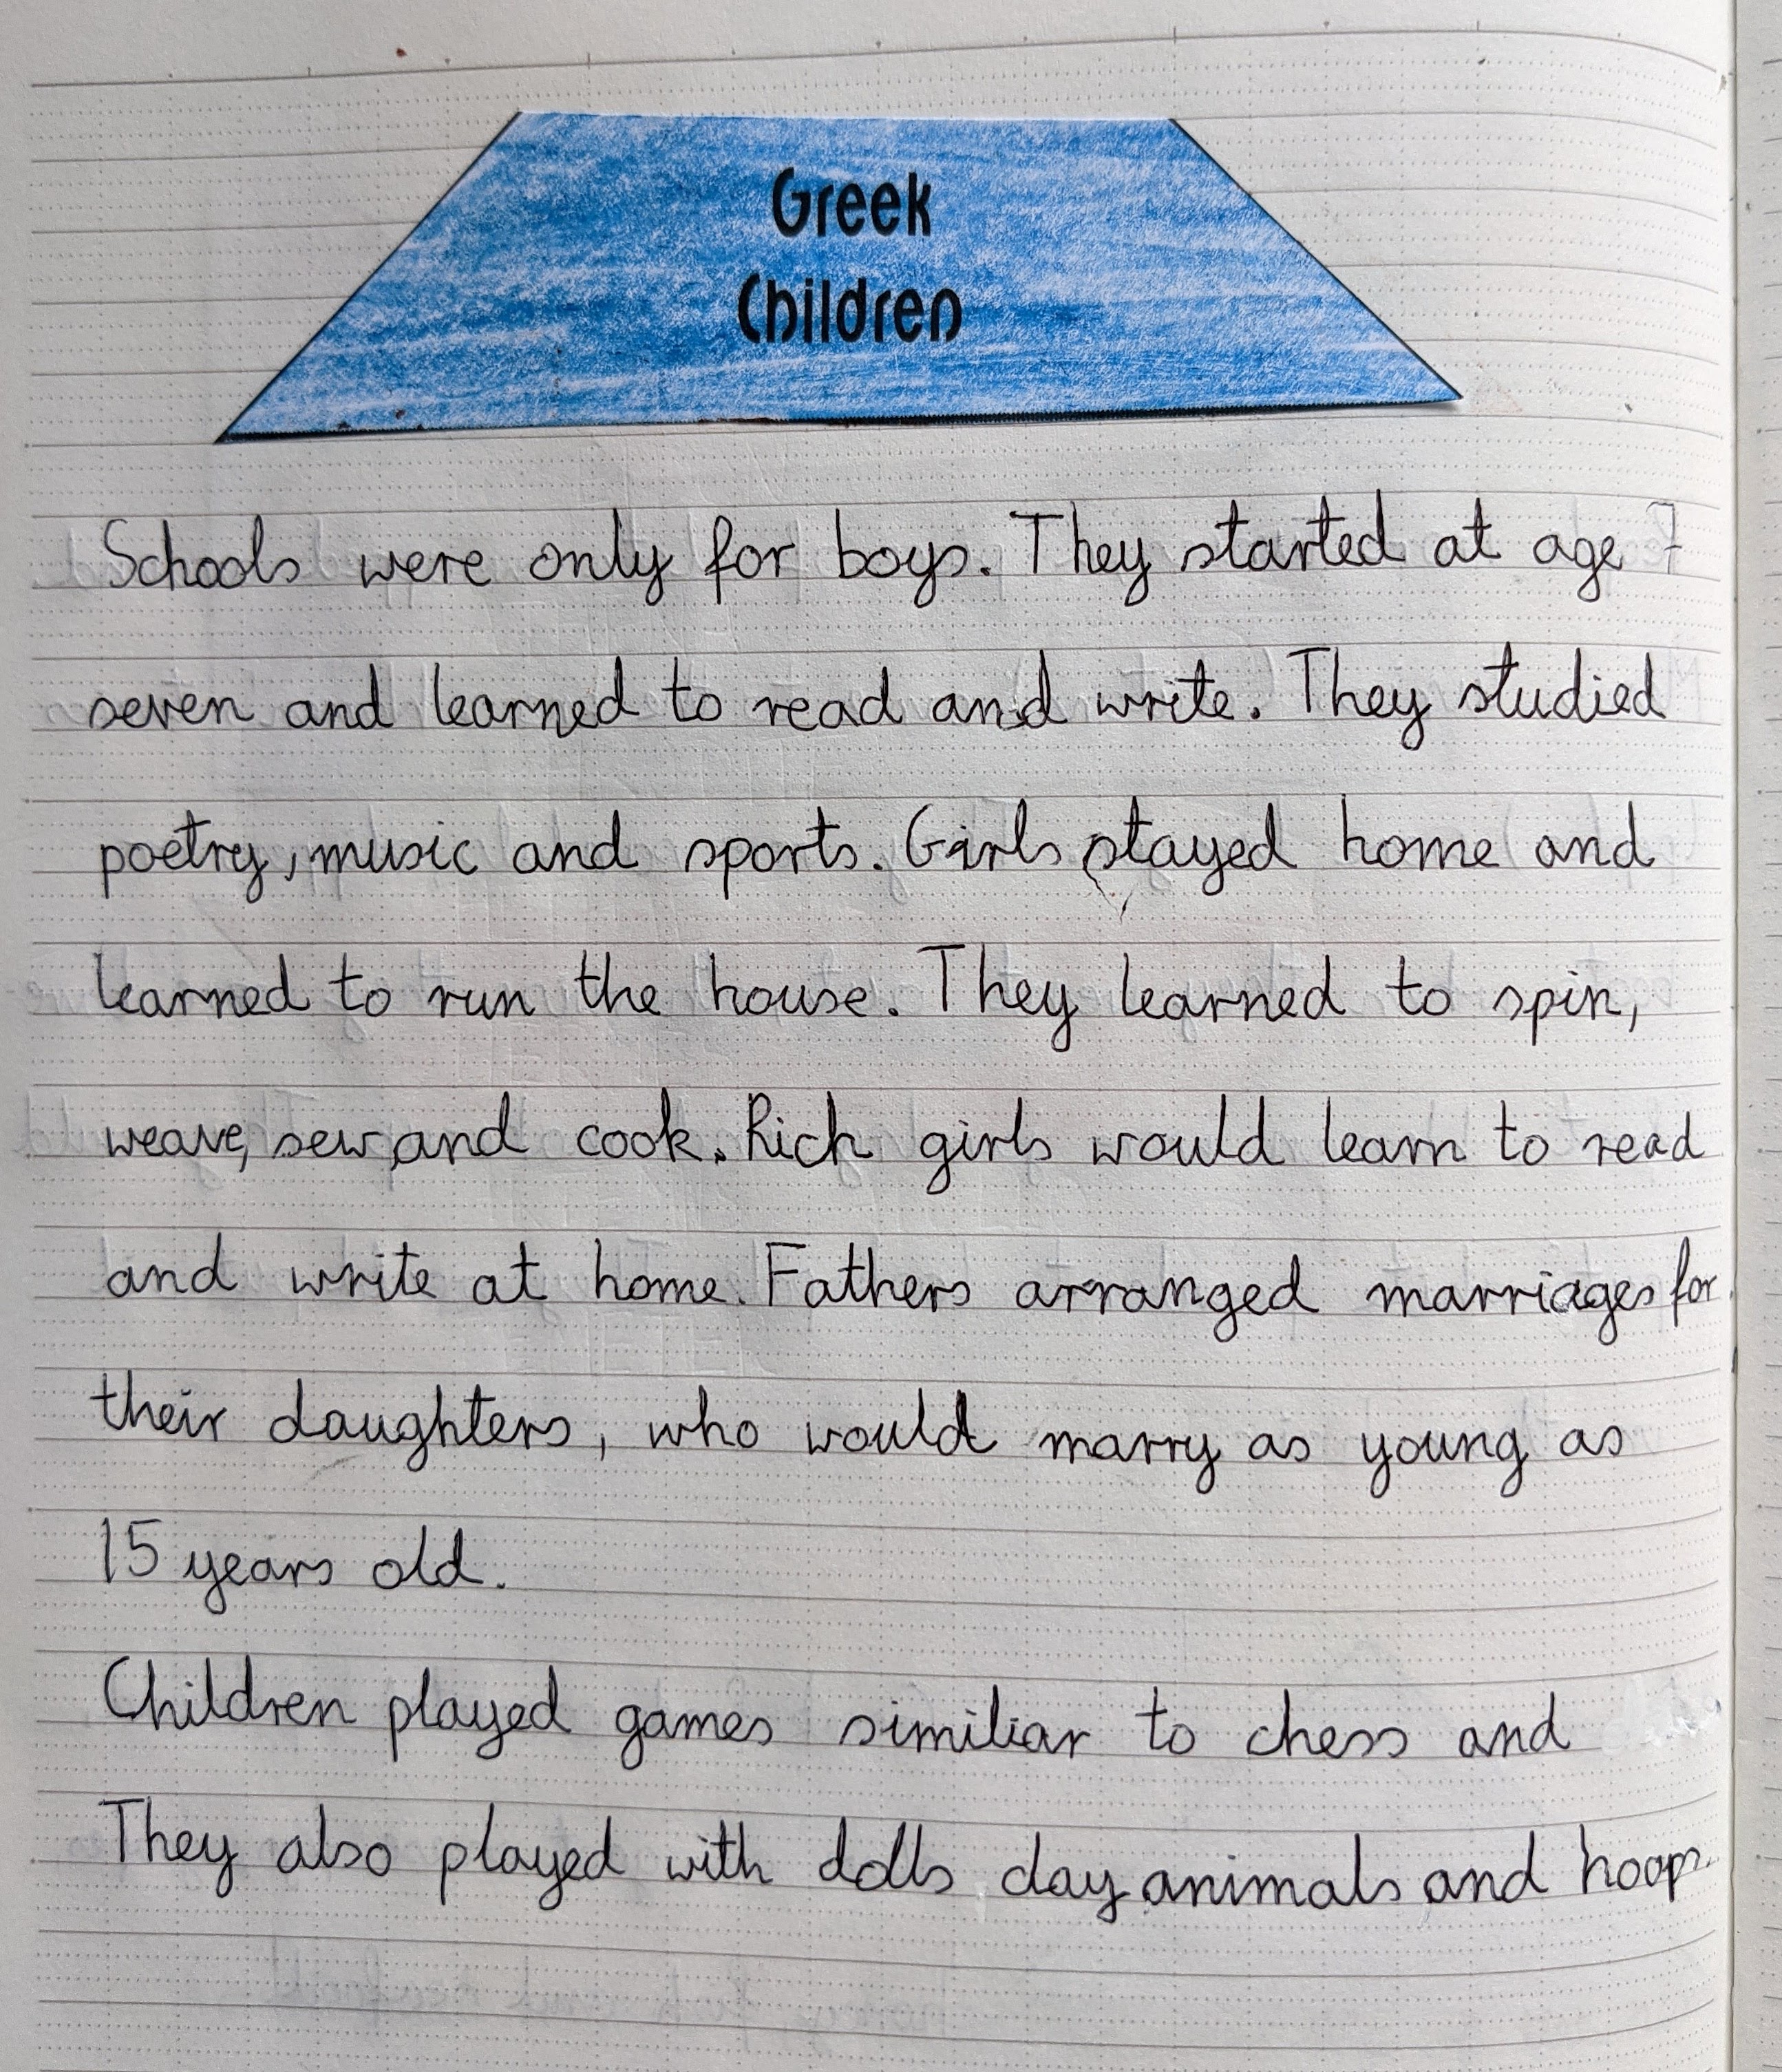 Greek
Children
Schools were only for boys. They started at age 7
seven and learned to read and write. They studied
poetry, music and sports. Girls stayed home and
learned to run the house. They learned to spin,
weave, sew and cook. Rich girls would learn to read
and write at home. Fathers arranged marriages for
their daughters, who would marry as young as
15 years old.
Children played games similiar to chess and
They also played with dolls, clay animals and hoops.